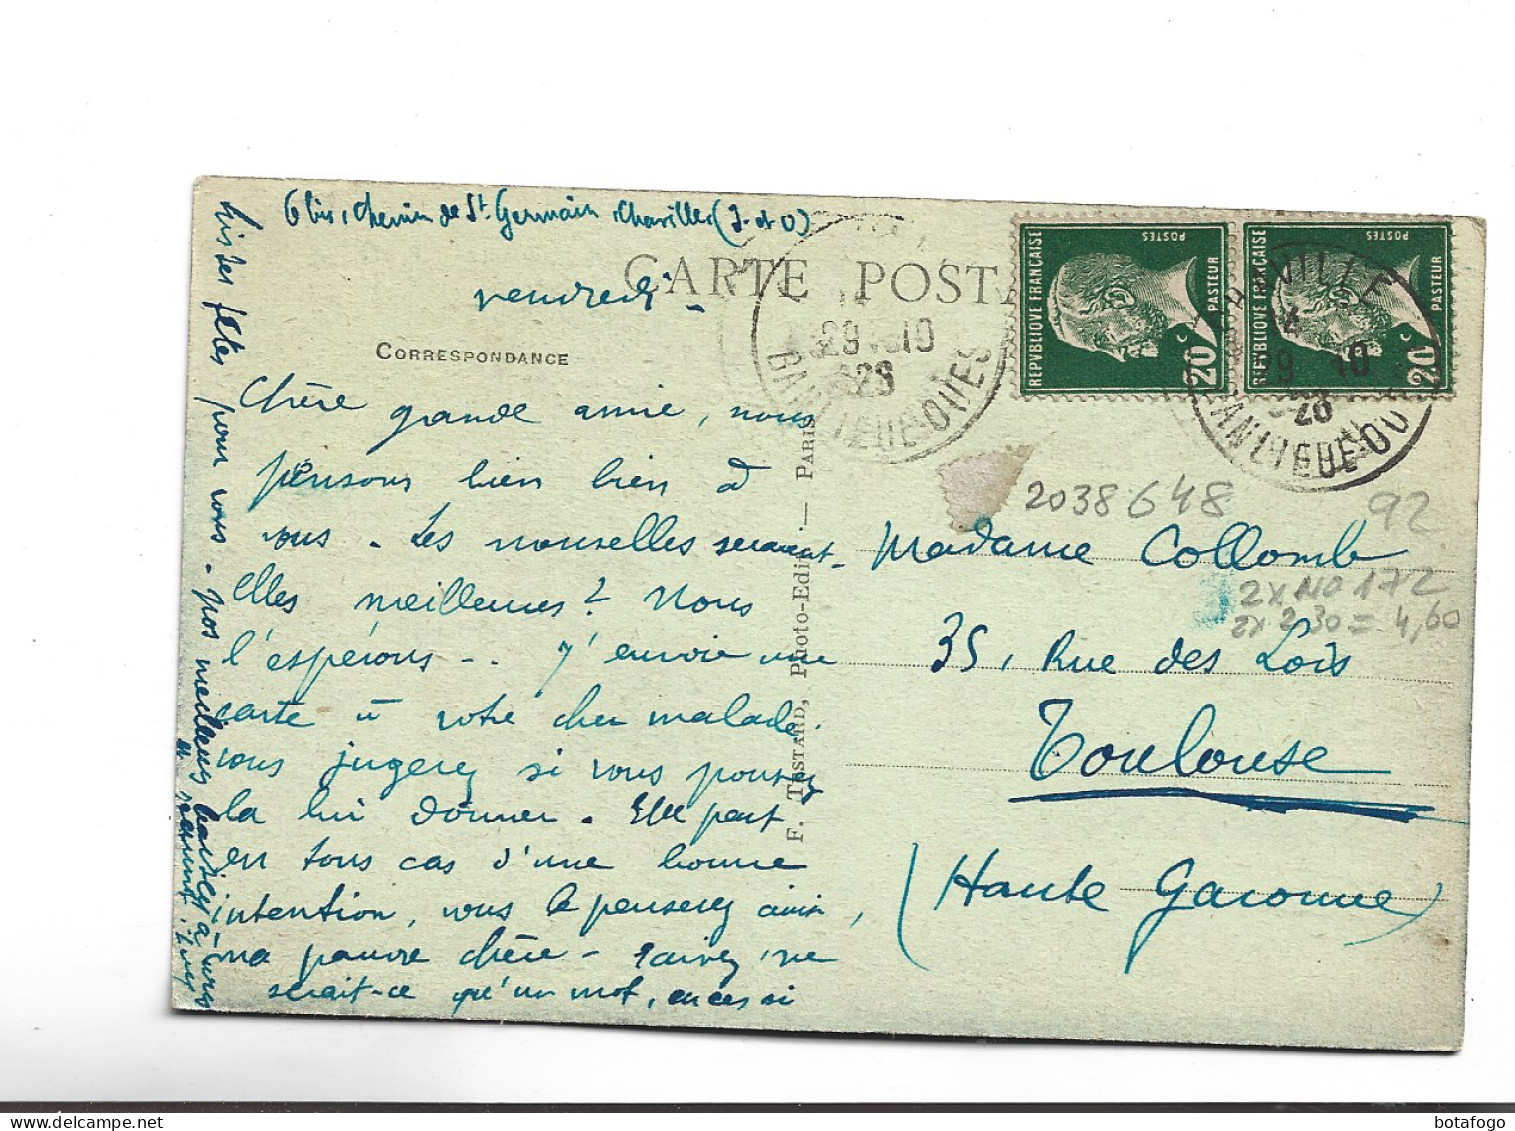 6 bis, Chemin de St. Germain, Chaville (S. et O)
vendredi -
CARTE POSTA
CORRESPONDANCE
Chère grande amie, nous
pensons bien bien à
vous - Les nouvelles seraient-
elles meilleures? Nous
l'espérons - . J'envoie une
carte à votre cher malade.
vous jugerez si vous pouvez
la lui donner - Elle part
en tous cas d'une bonne
intention, vous le penserez ainsi,
ma pauvre chère - 
ne
serait-ce qu'un mot, en ces si
tristes fêtes pour vous - nos meilleurs baisers à vous
F. TESTARD, PHOTO-EDIT. — PARIS
REPVBLIQVE FRANÇAISE
POSTES
PASTEUR
20
REPVBLIQVE FRANÇAISE
POSTES
PASTEUR
20
29 10
28
BANLIEUE-OUEST
CHAVILLE
29 10
28
BANLIEUE-OU
2038648
92
Madame Collomb
2x NO 172
2x 2,30 = 4,60
35, Rue des Lois
Toulouse
(Haute Garonne)
botafogo